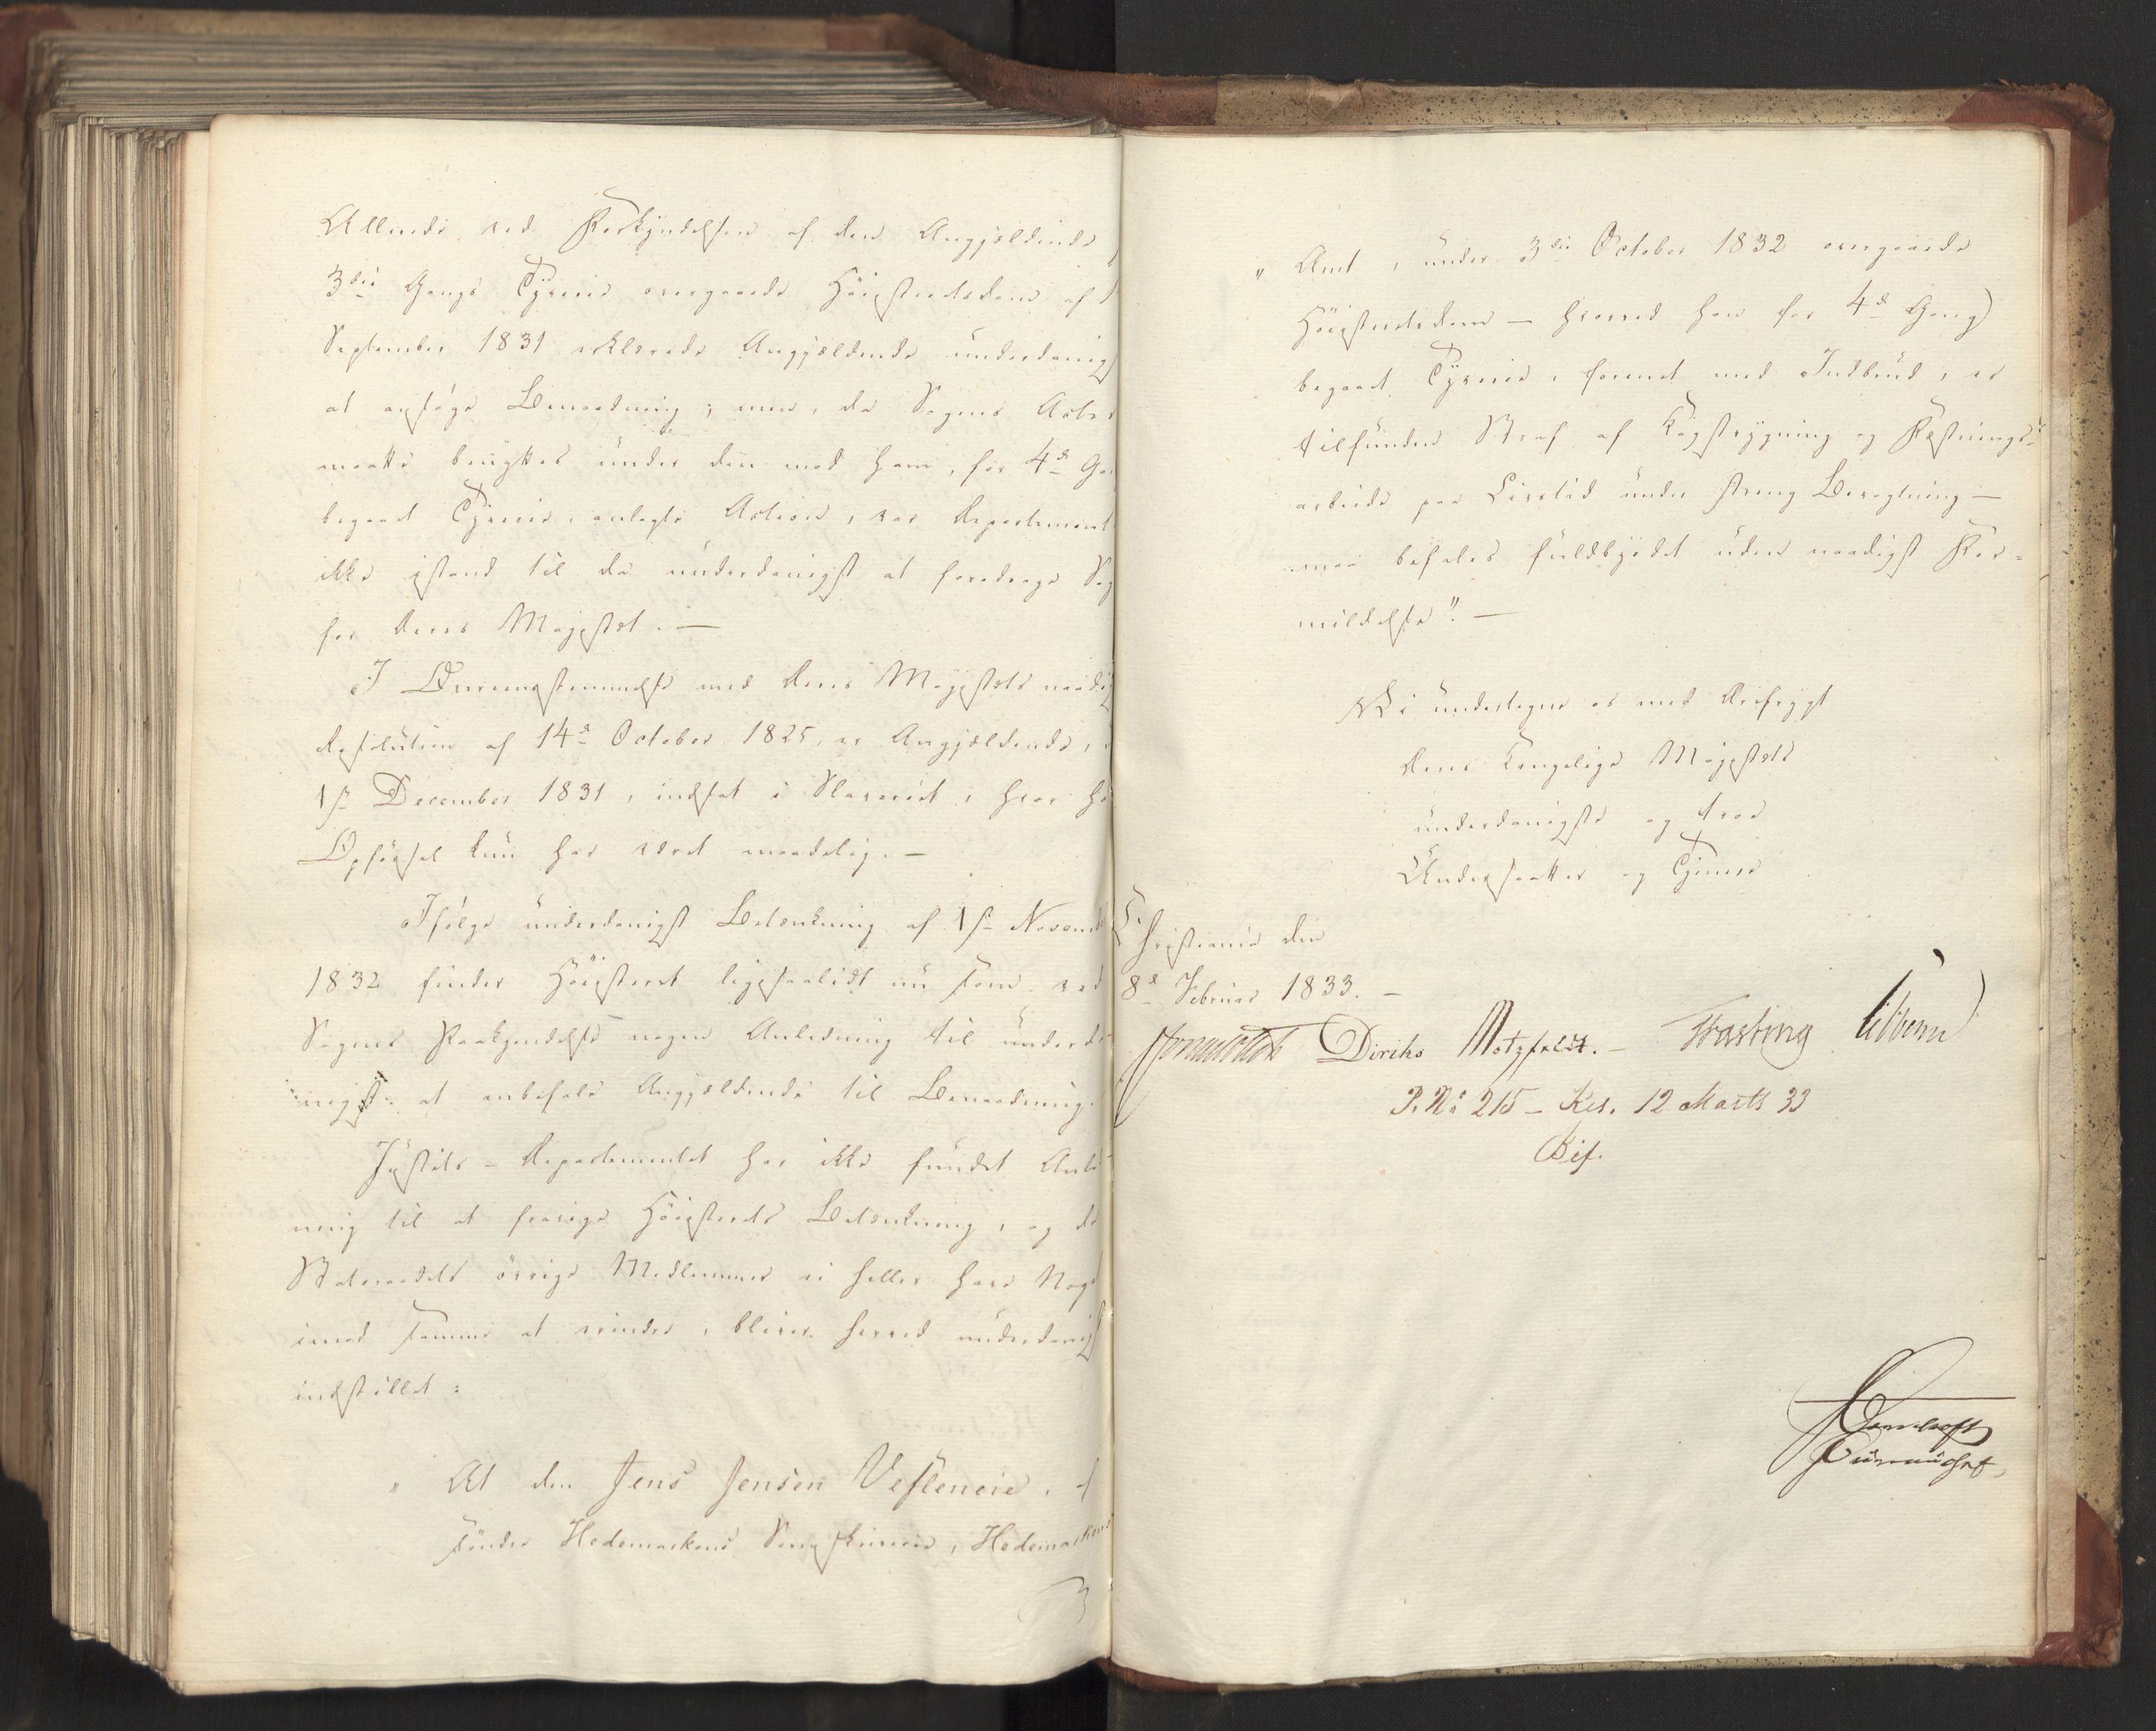 Allerede ved Forkyndelsen af den Angjældende
3die Gangs Tyverie overgaaede Høiesteretsdom af 1
September 1831 erklærede Angjældende underdanigs
at ansøge Benaadning; men, da Sagens Acter
maatte benyttes under den mod ham, for 4de Ga
begaaet Tyverie, anlagte Action, var Departement
ikke istand til da underdanigst at foredrage Sag
for Deres Majestæt. —
I Overeensstemmelse med Deres Majestæts naadig
Resolution af 14de October 1825, er Angjældende,
1ste December 1831, indsat i Slaveriet, hvor ha
Opførsel kun har været maadelig. —
Ifølge underdanigst Betænkning af 1ste Novemb
1832 finder Høiesteret ligesaalidt nu som ved
Sagens Paakjendelse nogen Anledning til underda
nigst at anbefale Angjældende til Benaadning.
Justits-Departementet har ikke fundet Anled
ning til at fravige Høiesterets Betænkning, og da
Statsraadets øvrige Medlemmer ei heller have Noge
imod samme at erindre, bliver herved underdanigs
indstillet:
" At den Jens Jensen Vesleneie, af
Søndre Hedemarkens Sorenskriverie, Hedemarkens
" Amt, under 3die October 1832 overgaaede
Høiesteretsdom — hvorved han for 4de Gang
begaaet Tyverie, forenet med Indbrud, er
tilfunden Straf af Kagstrygning og Fæstnings-
arbeide paa Livstid under streng Bevogtning —
maa befales fuldbyrdet uden naadigst For=
mildelse". —
Vi undertegne os med Ærefrygt
Deres Kongelige Majestæts
underdanigste og troe
Undersaatter og Tjenere
Christiania den
8de Februar 1833. —
Sommerfeldt Diriks Motzfeldt. — Fasting Sibbern
P. No 215 — Res. 12 Marts 33
Bif.